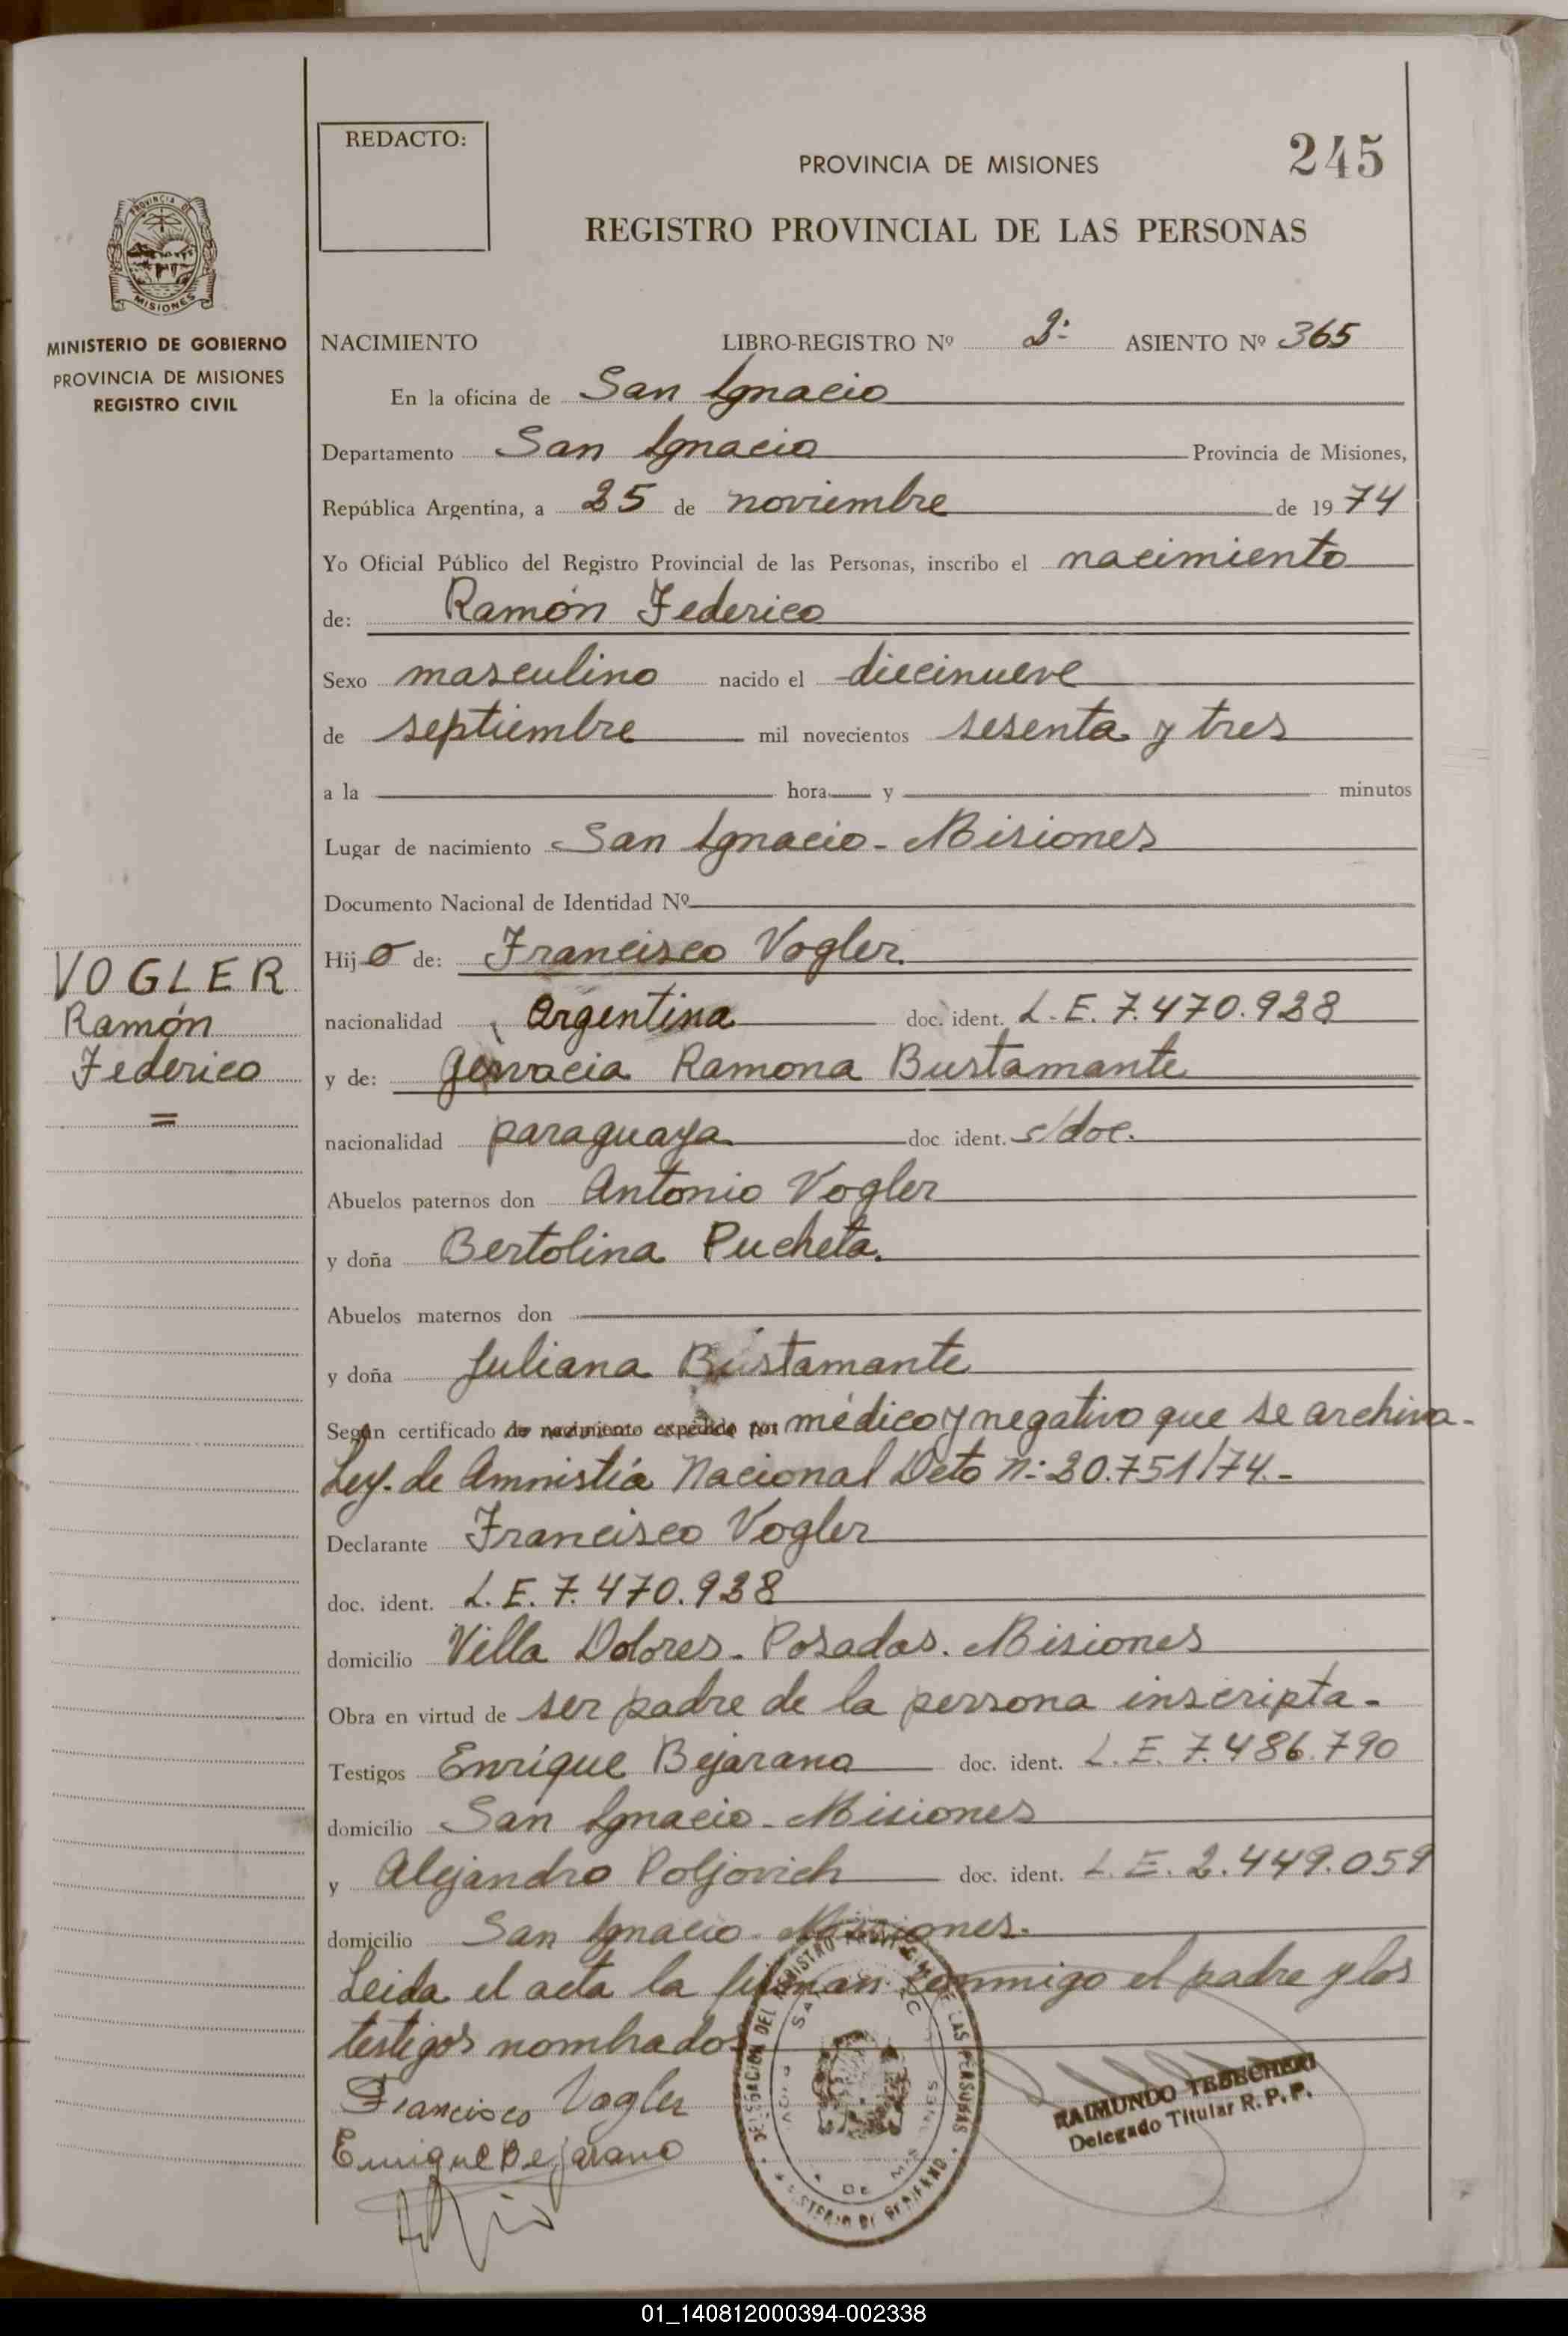 REDACTO:
PROVINCIA DE MISIONES
245
REGISTRO PROVINCIAL DE LAS PERSONAS
PROVINCIA DE
MISIONES
MINISTERIO DE GOBIERNO
PROVINCIA DE MISIONES
REGISTRO CIVIL
NACIMIENTO LIBRO-REGISTRO Nº 2º ASIENTO Nº 365
En la oficina de San Ignacio
Departamento San Ignacio Provincia de Misiones,
República Argentina, a 25 de noviembre de 1974
Yo Oficial Público del Registro Provincial de las Personas, inscribo el nacimiento
de: Ramón Federico
Sexo masculino nacido el diecinueve
de septiembre mil novecientos sesenta y tres
a la hora y minutos
Lugar de nacimiento San Ignacio - Misiones
Documento Nacional de Identidad Nº
VOGLER
Ramón
Federico
=
Hijo de: Francisco Vogler.
nacionalidad Argentina doc. ident. L. E. 7.470.928
y de: Gervacia Ramona Bustamante
nacionalidad paraguaya doc. ident. s/doc.
Abuelos paternos don Antonio Vogler
y doña Bertolina Pucheta.
Abuelos maternos don
y doña Juliana Bustamante
Según certificado de nacimiento expedido por médico y negativo que se archiva -
Ley. de Amnistía Nacional Dcto n: 20.751/74 -
Declarante Francisco Vogler
doc. ident. L. E. 7.470.928
domicilio Villa Dolores - Posadas. Misiones
Obra en virtud de ser padre de la persona inscripta -
Testigos Enrique Bejarano doc. ident. L. E. 7.486.790
domicilio San Ignacio - Misiones
y Alejandro Poljovich doc. ident. L. E. 2.449.059
domicilio San Ignacio - Misiones.
Leida el acta la firman conmigo el padre y los
testigos nombrados
Francisco Vogler
Enrique Bejarano
DELEGACION DEL REGISTRO DE LAS PERSONAS
RAIMUNDO TEBECHERI
Delegado Titular R. P. P.
01_140812000394-002338